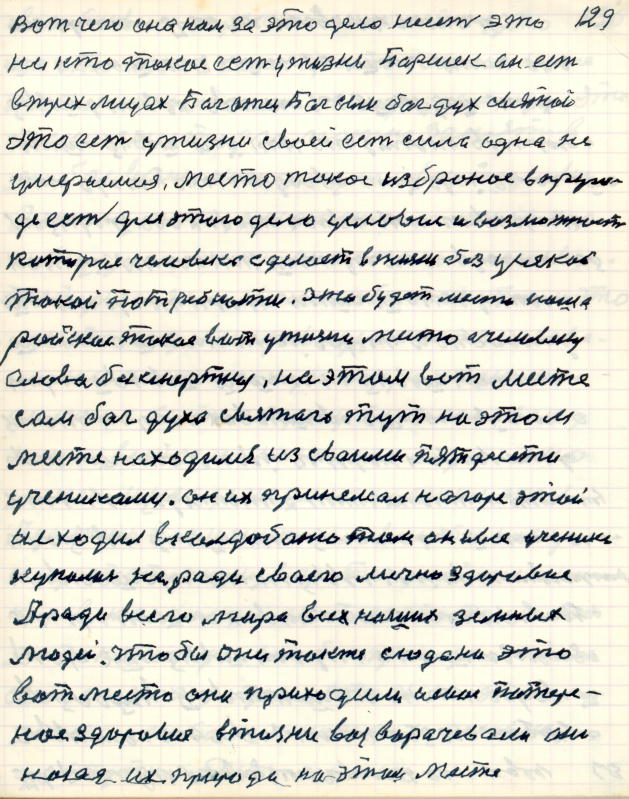 Вот чего она нам за это дело несет это 129
не кто такое ест у жизни Паршек он ест
в трех лицах бог отец Бог сын бог дух святой
Это ест у жизни своей ест сила одна не
умераемая, место такое изброное в приро-
де ест для этого дело условия и возможност
которые человек сделает в жизни без усякой
такой потребности. Это будет место наша
райское такое вот у жизни место человеку
слова бессмертия, на этом вот месте
сам бог духа святого тут на этом
месте находился из своими пятдести
учениками. он их принемал на горе этой
и сходил в колдобану там они все ученики
купалис не ради своего лично здоровие
А ради всего мира всех наших земных
людей. чтобы они также сюда на это
вот место они приходили и свое потере-
ное здоровие в жизни возворачевали они
новая их природа на этом месте